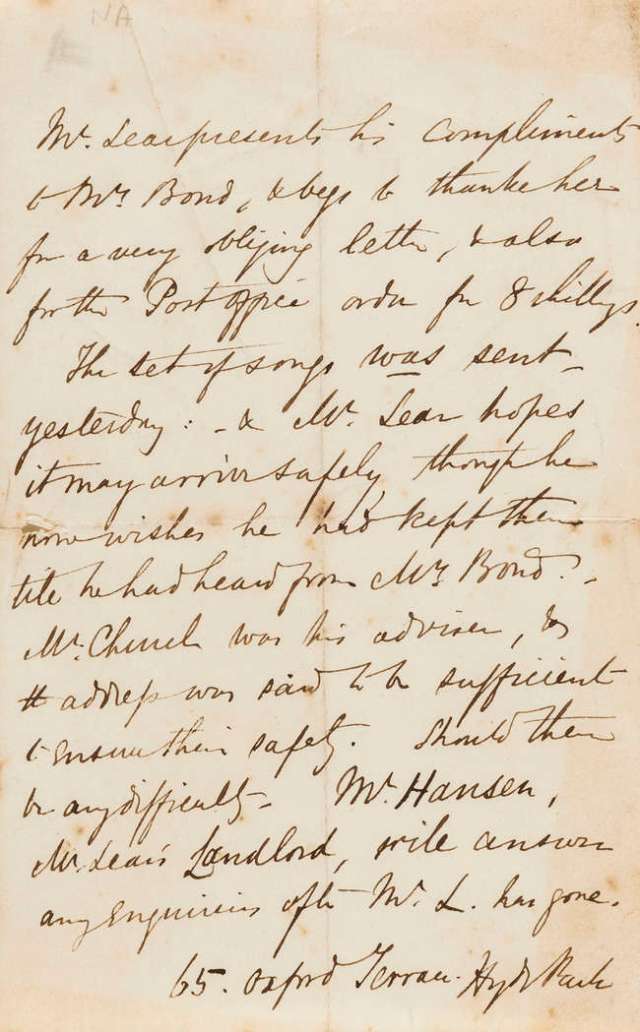 NA
Mr. Lear presents his compliments
to Mrs Bond, & begs to thanke her
for a very obliging letter, & also
for the Post office order for 8 shillgs.
The set of songs was sent
yesterday: - & Mr. Lear hopes
it may arrive safely, though he
now wishes he had kept them
till he had heard from Mrs Bond. -
Mr. Church was his adviser, &
address was said to be sufficient
to ensure their safety. Should there
be any difficulty - Mr. Hansen,
Mr. Lear's Landlord, will answer
any enquiries after Mr. L. has gone.
65. Oxford Terrace. Hyde Park